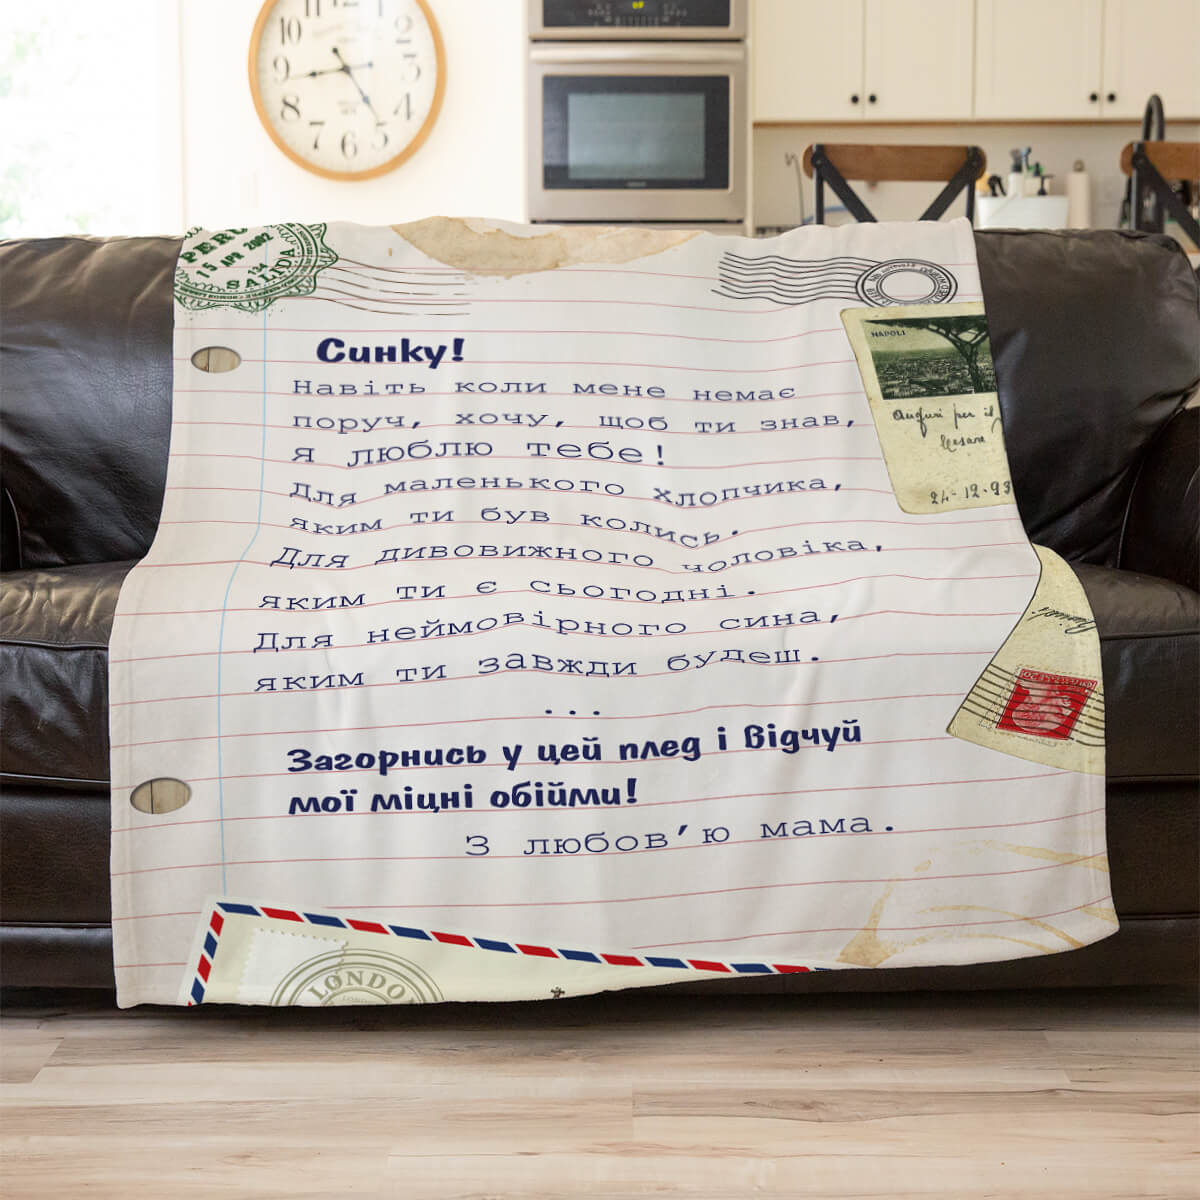 10
2
9
3
8
4
7
6
5
PERU
15 APR 2002
134
SALIDA
NAPOLI
Синку!
Навіть коли мене немає
поруч, хочу, щоб ти знав,
я люблю тебе!
Для маленького хлопчика,
яким ти був колись.
Для дивовижного чоловіка,
яким ти є сьогодні.
Для неймовірного сина,
яким ти завжди будеш.
...
Загорнись у цей плед і відчуй
мої міцні обійми!
З любов'ю мама.
Auguri per il
Cesare
24-12-93
LONDON